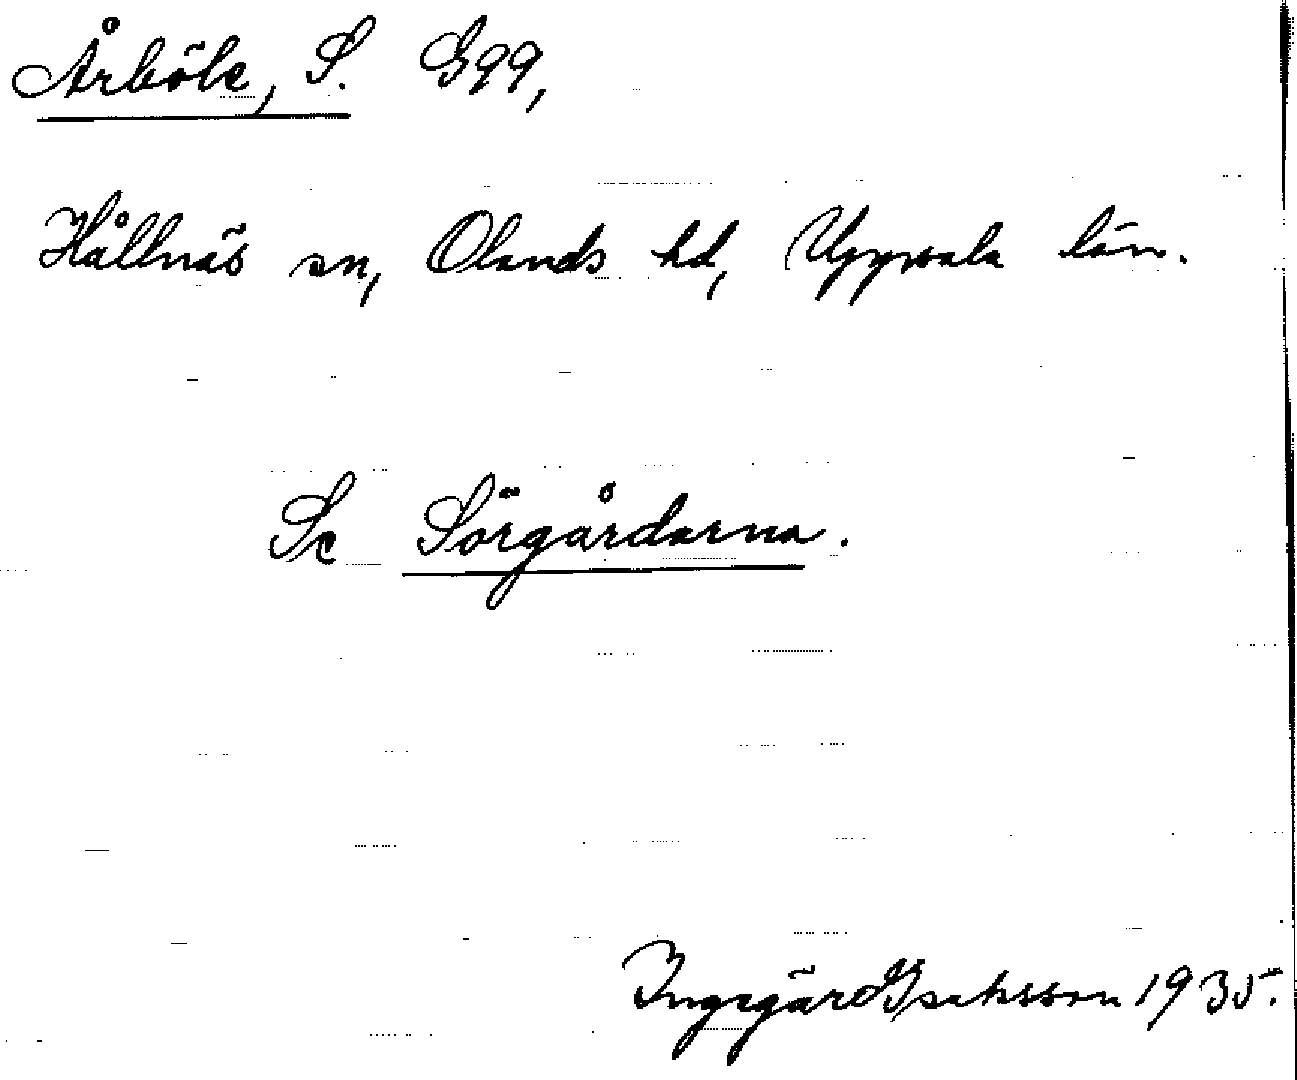 Årböle, S. G99,
Hållnäs sn, Olands hd, Uppsala län.
Se Sörgårdarna.
Ingegärd Isaksson 1935.